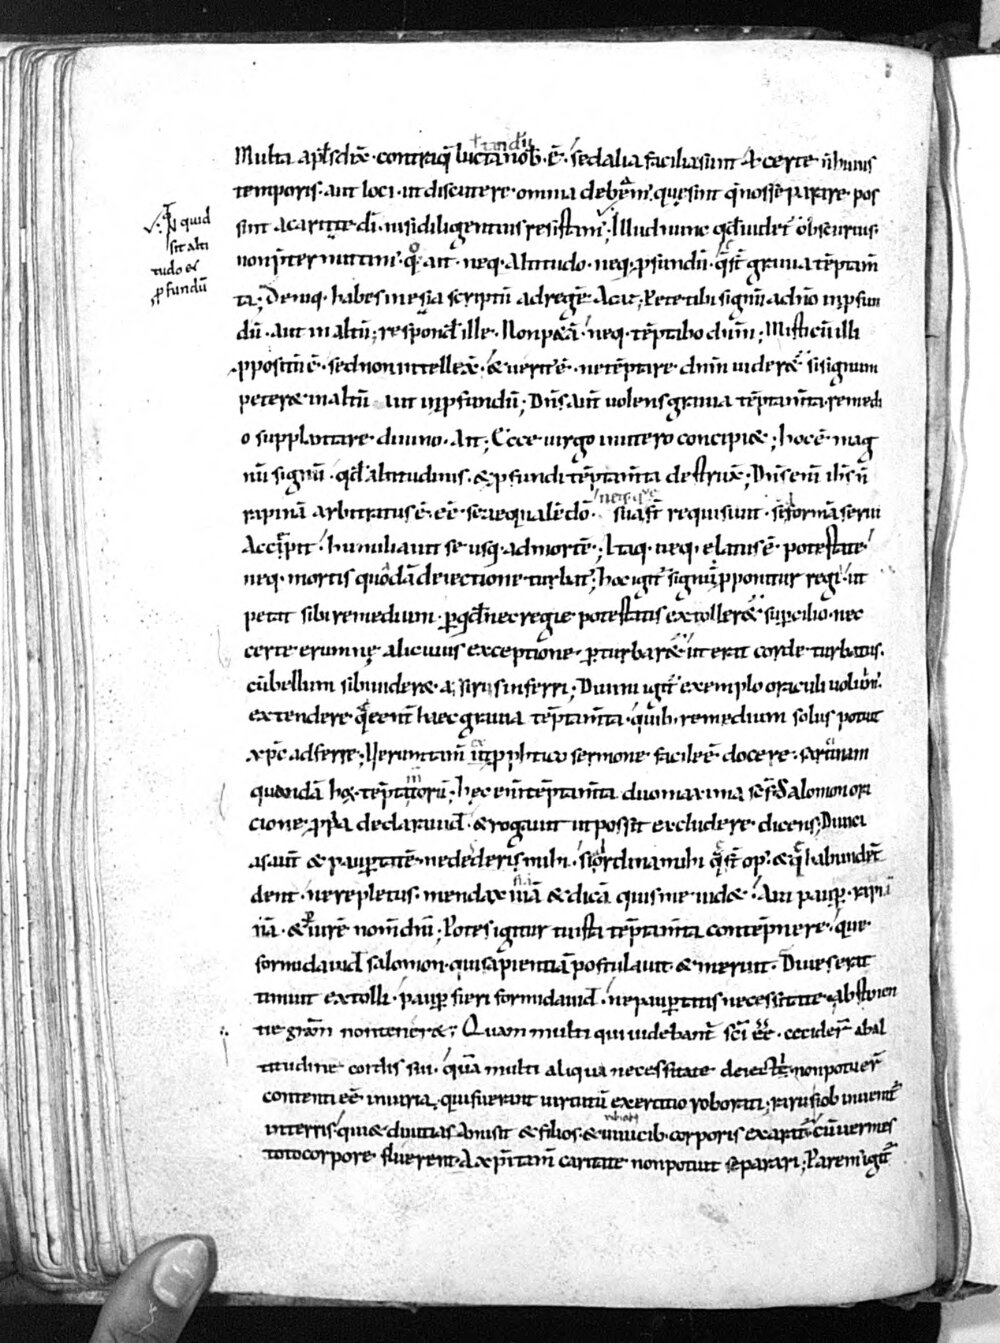 Multa apłs dix̄· contra q̄ luctandū nob̄· ē· sed alia facilia sunt· & certe
temporis· aut loci· ut discutere· omnia debem̄· que sint q̄ nos se parare pos
sint a caritate dī· nisi diligentius resistam̄; Illud nunc qd̄ uidet̄ obscurius·
non p̄termittam̄· qm̄ ait· neq· altitudo· neq· ꝓfundū· q̄ st̄ grauia tēptam̄
ta; Deniq· habes in esaia scriptū ad regē Acaz; Pete tibi signū a dn̄o in ꝓfun
dū· aut in altū; respond̄ ille· Non petā· neq· tēptabo dn̄m; Misticū illi
ꝓpositū ē· sed non intellex̄· & uerit̄ ē· ne tēptare dn̄m uider& si signum
peter& in altū aut in ꝓfundū; Dn̄s aūt uolens grauia tēptam̄ta remedi
o supplantare diuino· Ait; Ecce uirgo in utero concipi&; hoc ē mag
nū signū· qd̄ altitudinis· & ꝓfundi tēptam̄ta destrux̄; Dn̄s enī ihs̄ n̄
rapinā arbitratus ē· ēē· se aequalē dō· neq· quae sua st̄ requisiuit· s; formā serui
accipit· humiliauit se usq· ad mortē; Itaq· neq· elatus ē· potestate
neq· mortis quadā deiectione turbat̄; hoc igit̄ signū ꝓponitur regi· ut
petat sibi remedium· ꝑ qd̄ nec regie potestatis extoller& suꝑcilio· nec
certe erumnę alicuius exceptione· ꝑturbar&· ut erat corde turbatus·
cū bellum sibi uider& a siris inferri; Diuini igit̄ exemplo oraculi uolum̄·
extendere· q̄ e sent haec grauia tēptam̄ta· quib· remedium solus potuit
xp̄c adferre; Veruntam̄ ex ꝓph&ico sermone facile ē docere· formam
quandā hoꝝ tēptam̄torū; hęc enī tēptam̄ta duo maxima sc̄s Salomon ori
cione ꝓpria declarauid· & rogauit ut possit excludere dicens; Diuici
as aūt & pauꝑtatē· ne dederis mihi· s; ordina mihi q̄ st̄ op̄· & q̄ habundēt
dent· ne repletus· mendax fiā & dicā quis me uid&· Aut pauꝑ·
& iurē nom̄ dn̄i; Potes igitur iusta tēptam̄ta contēpnere· que
formidauid salomon· qui sapientiā postulauit· & meruit· Diues erat
timuit extolli· pauꝑ fieri formidauid· ne pauꝑtatis necessitate· abstinen
tie grām non tener&; Quam multi qui uidebant̄ sc̄i ēē· cecider̄ ab al
titudine cordis sui· quā multi aliqua necessitate deiecti· non potuer̄
contenti ēē iniuria, qui fuerant uirtutū exercitio roborati; rarus iob inuenit̄
in terris· qui & diuitias amisit & filios· & corporis exarsit· cū uermes
toto corpore fluerent· A xp̄i tam̄ caritate non potuit separari; Parem igit̄
Qui quid
sit alti
tudo et
ꝓfundū